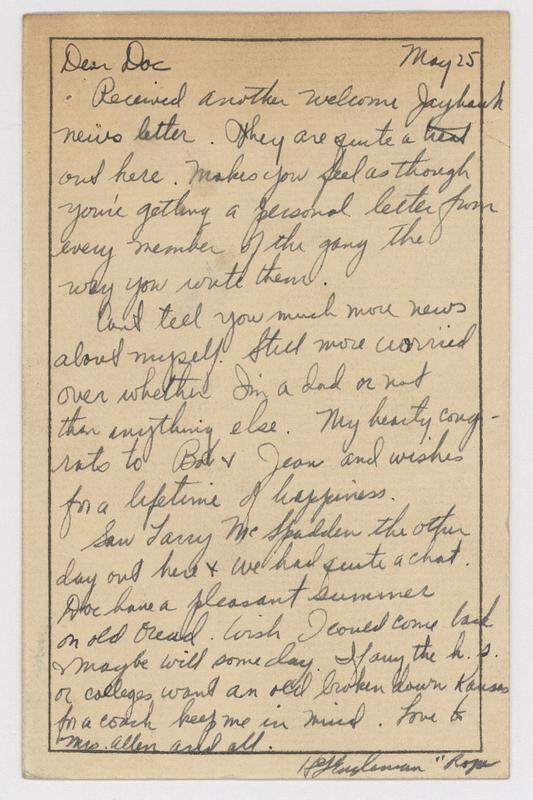 Dear Doc May 25
Received another welcome Jayhawk
news letter. They are quite a treat
out here. Makes you feel as though
you're getting a personal letter from
every member of the gang the
way you write them.
Can't tell you much more news
about myself. Still more worried
over whether I'm a dad or not
than anything else. My hearty cong-
rats to Bob & Jean and wishes
for a lifetime of happiness.
Saw Larry McSpadden the other
day out here & we had quite a chat.
Doc have a pleasant summer
on old Oread. Wish I could come back
& maybe will some day. If any the h. s.
or colleges want an old broken down Kansas
for a coach keep me in mind. Love to
Mrs. Allen and all.
Engleman "Rope